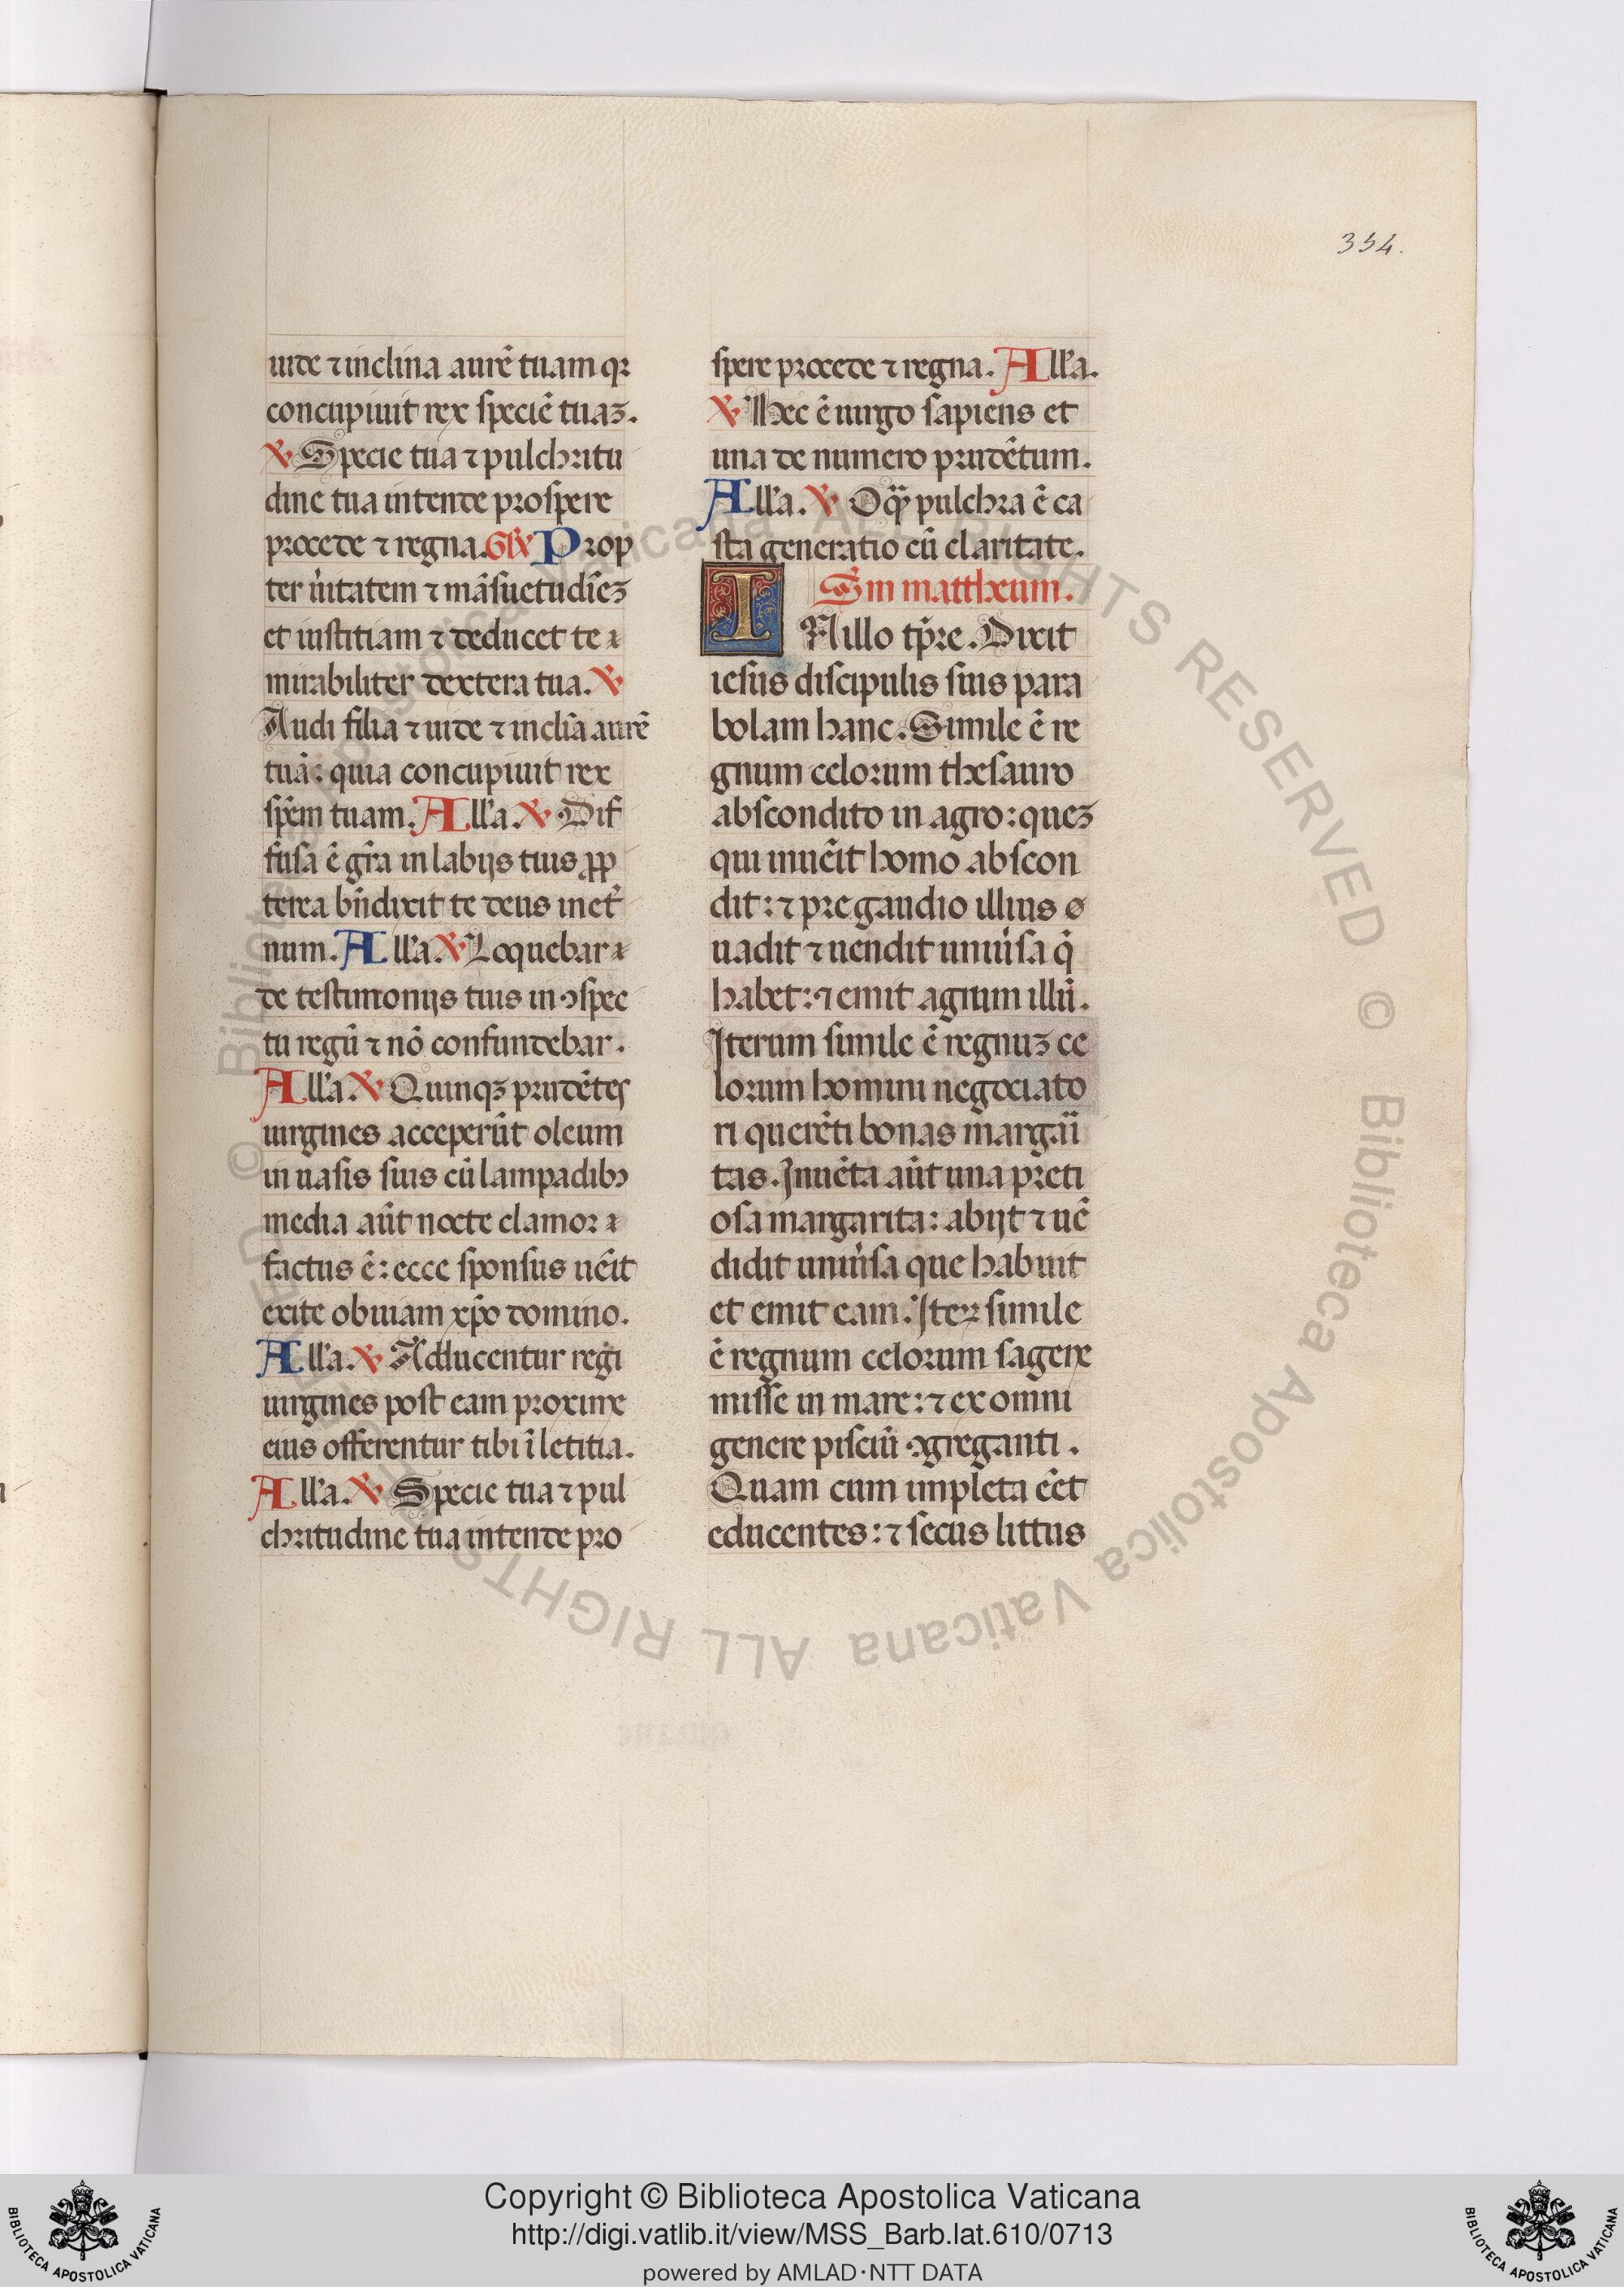 334.
uide ⁊ inclina aurē tuam qꝛ
concupiuit rex speciē tuaꝫ.
℣ Specie tua ⁊ pulchritu
dine tua intende prospere
procede ⁊ regna. Gꝶ Prop
ter ũitatem ⁊ māsuetudīeꝫ
et iustitiam ⁊ deducet te
mirabiliter dextera tua. ℣
Audi filia ⁊ uide ⁊ incliā aurē
tuā: quia concupiuit rex
spēm tuam. All'a. ℣ Dif
fusa ē gr̄a in labijs tuis ꝓp
terea bn̄dixit te deus in et̾
num. All'a ℣ Loquebar
de testimonijs tuis in ꝯspec
tu regū ⁊ nō confundebar.
All'a ℣ Quinqꝫ prudētes
uirgines acceperūt oleum
in uasis suis cū lampadibꝰ
media aūt nocte clamor
factus ē: ecce sponsus uēit
exite obuiam xp̄o domino.
All'a. ℣ Adducentur regi
uirgines post eam proxime
eius offerentur tibi ī letitia.
All'a. ℣ Specie tua ⁊ pul
chritudine tua intende pro
spere procede ⁊ regna. All'a.
℣ Hec ē uirgo sapiens et
una de numero prudētum.
All'a. ℣ O qꝫ pulchra ē ca
sta generatio cū claritate.
Sm mattheum.
IN illo tp̄re. Dixit
iesus discipulis suis para
bolam hanc. Simile ē re
gnum celorum thesauro
abscondito in agro: queꝫ
qui inuēit homo abscon
dit: ⁊ pre gaudio illius
uadit ⁊ uendit uniũsa q̄
habet: ⁊ emit agrum illū.
Iterum simile ē regnuꝫ ce
lorum homini negociato
ri querēti bonas margaï
tas. Inuēta aūt una preti
osa margarita: abijt ⁊ uē
didit uniũsa que habuit
et emit eam. Iteꝝ simile
ē regnum celorum sagene
misse in mare: ⁊ ex omni
genere pisciū ꝯgreganti.
Quam cum impleta eēt
educentes: ⁊ secus littus
© Biblioteca Apostolica Vaticana ALL RIGHTS RESERVED © Biblioteca Apostolica Vaticana ALL RIGHTS RESERVED
BIBLIOTECA APOSTOLICA VATICANA
Copyright © Biblioteca Apostolica Vaticana
http://digi.vatlib.it/view/MSS_Barb.lat.610/0713
powered by AMLAD·NTT DATA
BIBLIOTECA APOSTOLICA VATICANA